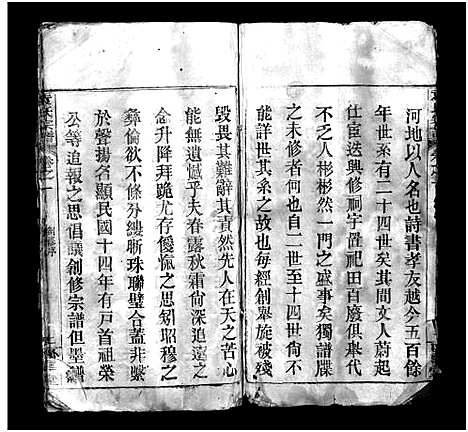 河地以人名也詩書孝友越今五百餘
年世系有二十四世矣其間文人蔚起
仕宦迭興修祠宇置祀田百廢俱舉代
不乏人彬彬然一門之盛事矣獨譜牒
之未修者何也自一世至十四世尙不
能詳世其系之故也每經創舉旋被殘
毀畏其難辭其責然先人在天之苦心
能無遺憾乎夫春露秋霜尙深追遠之
念升降拜跪尤存僾愾之思矧昭穆之
彝倫欲不條分縷晣珠聯璧合蓋非繫
於聲揚名顯民國十四年有戶首祖榮
公等追報之思倡議創修宗譜但墨